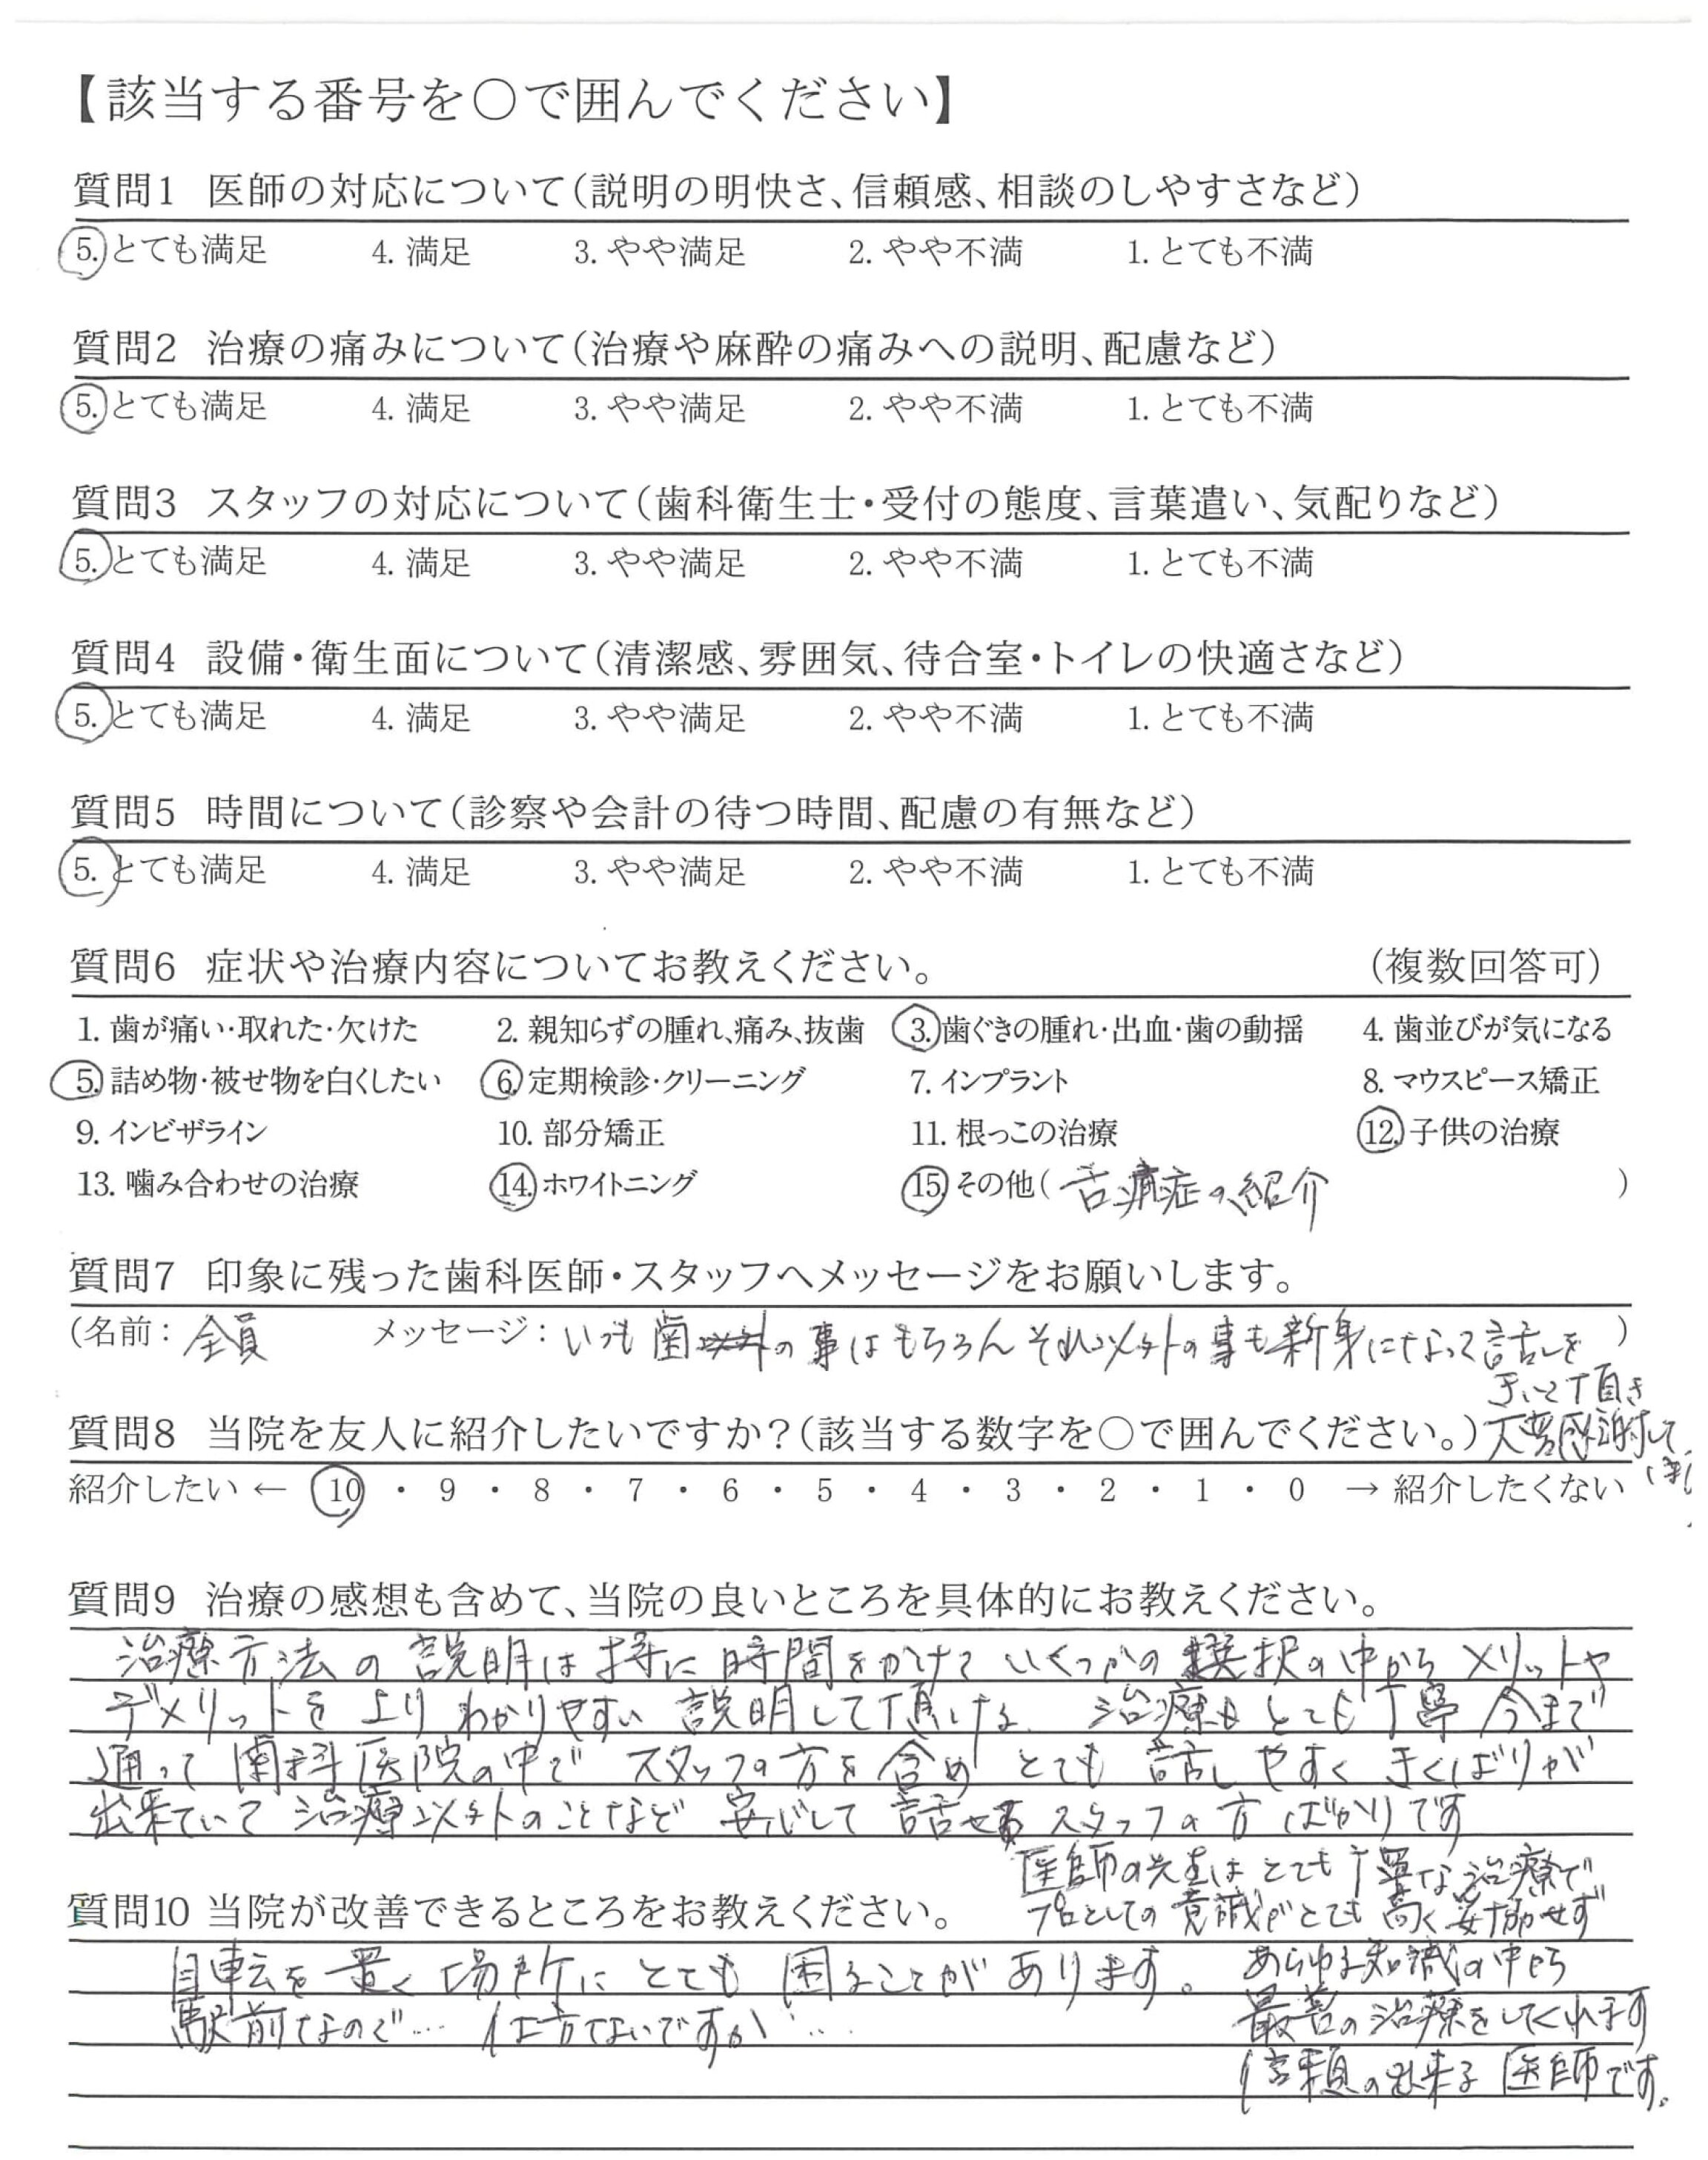 【該当する番号を〇で囲んでください】
質問1 医師の対応について(説明の明快さ、信頼感、相談のしやすさなど)
5. とても満足 4. 満足 3. やや満足 2. やや不満 1. とても不満
質問2 治療の痛みについて(治療や麻酔の痛みへの説明、配慮など)
5. とても満足 4. 満足 3. やや満足 2. やや不満 1. とても不満
質問3 スタッフの対応について(歯科衛生士・受付の態度、言葉遣い、気配りなど)
5. とても満足 4. 満足 3. やや満足 2. やや不満 1. とても不満
質問4 設備・衛生面について(清潔感、雰囲気、待合室・トイレの快適さなど)
5. とても満足 4. 満足 3. やや満足 2. やや不満 1. とても不満
質問5 時間について(診察や会計の待つ時間、配慮の有無など)
5. とても満足 4. 満足 3. やや満足 2. やや不満 1. とても不満
質問6 症状や治療内容についてお教えください。 (複数回答可)
1. 歯が痛い・取れた・欠けた 2. 親知らずの腫れ、痛み、抜歯 3. 歯ぐきの腫れ・出血・歯の動揺 4. 歯並びが気になる
5. 詰め物・被せ物を白くしたい 6. 定期検診・クリーニング 7. インプラント 8. マウスピース矯正
9. インビザライン 10. 部分矯正 11. 根っこの治療 12. 子供の治療
13. 噛み合わせの治療 14. ホワイトニング 15. その他( 舌痛症の紹介 )
質問7 印象に残った歯科医師・スタッフへメッセージをお願いします。
(名前: 全員 メッセージ: いつも歯の事はもちろんそれ以外の事も新身になって話しを )
きいて頂き
大変感謝して
います
質問8 当院を友人に紹介したいですか?(該当する数字を〇で囲んでください。)
紹介したい ← 10 ・ 9 ・ 8 ・ 7 ・ 6 ・ 5 ・ 4 ・ 3 ・ 2 ・ 1 ・ 0 → 紹介したくない
質問9 治療の感想も含めて、当院の良いところを具体的にお教えください。
治療方法の説明は特に時間をかけていくつかの選択の中からメリットや
デメリットをよりわかりやすい説明して頂ける 治療もとても丁寧 今まで
通って歯科医院の中で スタッフの方を含め とても話しやすく きくばりが
出来ていて 治療以外のことなど 安心して話せる スタッフの方ばかりです
医師の先生はとても丁寧な治療で
プロとしての意識がとても高く妥協せず
あらゆる知識の中から
最善の治療をしてくれます
信頼の出来る医師です。
質問10 当院が改善できるところをお教えください。
自転を置く場所にとても困ることがあります。
駅前なので… 仕方ないですが…